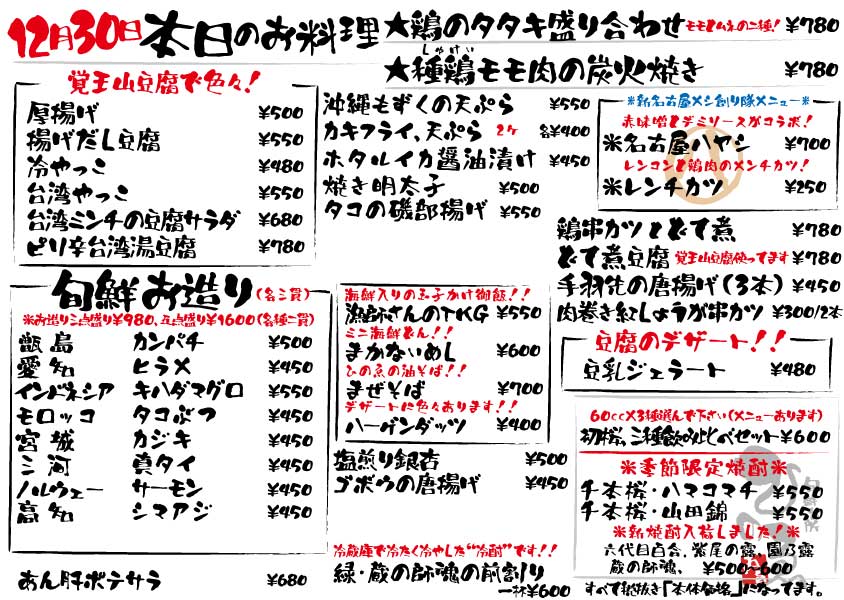 12月30日本日のお料理
★鶏のタタキ盛り合わせ モモとムネの二種! ¥780
しゅけい
★種鶏モモ肉の炭火焼き ¥780
覚王山豆腐で色々!
厚揚げ ¥500
揚げだし豆腐 ¥550
冷やっこ ¥480
台湾やっこ ¥550
台湾ミンチの豆腐サラダ ¥680
ピリ辛台湾湯豆腐 ¥780
沖縄もずくの天ぷら ¥550
カキフライ、天ぷら 2ケ 各¥400
ホタルイカ醤油漬け ¥450
焼き明太子 ¥500
タコの磯部揚げ ¥550
※新名古屋メシ創り隊メニュー※
赤味噌とデミソースがコラボ!
※名古屋ハヤシ ¥700
レンコンと鶏肉のメンチカツ!
※レンチカツ ¥250
鶏串カツとどて煮 ¥780
どて煮豆腐 覚王山豆腐使ってます ¥780
手羽先の唐揚げ(3本) ¥450
肉巻き紅しょうが串カツ ¥300/2本
旬鮮お造り(各三貫)
※お造り三点盛り¥980、五点盛り¥1600(各種二貫)
甑島 カンパチ ¥500
愛知 ヒラメ ¥450
インドネシア キハダマグロ ¥550
モロッコ タコぶつ ¥450
宮城 カジキ ¥450
三河 真タイ ¥450
ノルウェー サーモン ¥450
高知 シマアジ ¥450
あん肝ポテサラ ¥680
海鮮入りの玉子かけ御飯!!
漁師さんのTKG ¥550
ミニ海鮮どん!!
まかないめし ¥600
ひのゑの油そば!!
まぜそば ¥700
デザートに色々あります!!
ハーゲンダッツ ¥400
塩煎り銀杏 ¥500
ゴボウの唐揚げ ¥450
冷蔵庫で冷たく冷やした"冷酎"です!!
緑・蔵の師魂の前割り
一杯¥600
豆腐のデザート!!
豆乳ジェラート ¥480
60cc×3種選んで下さい(メニューあります)
初桜、三種飲み比べセット¥600
※季節限定焼酎※
千本桜・ハマコマチ ¥550
千本桜・山田錦 ¥550
※新焼酎入荷しました!※
六代目百合、紫尾の露、園乃露
蔵の師魂、 ¥500~600
すべて税抜き「本体価格」になってます。